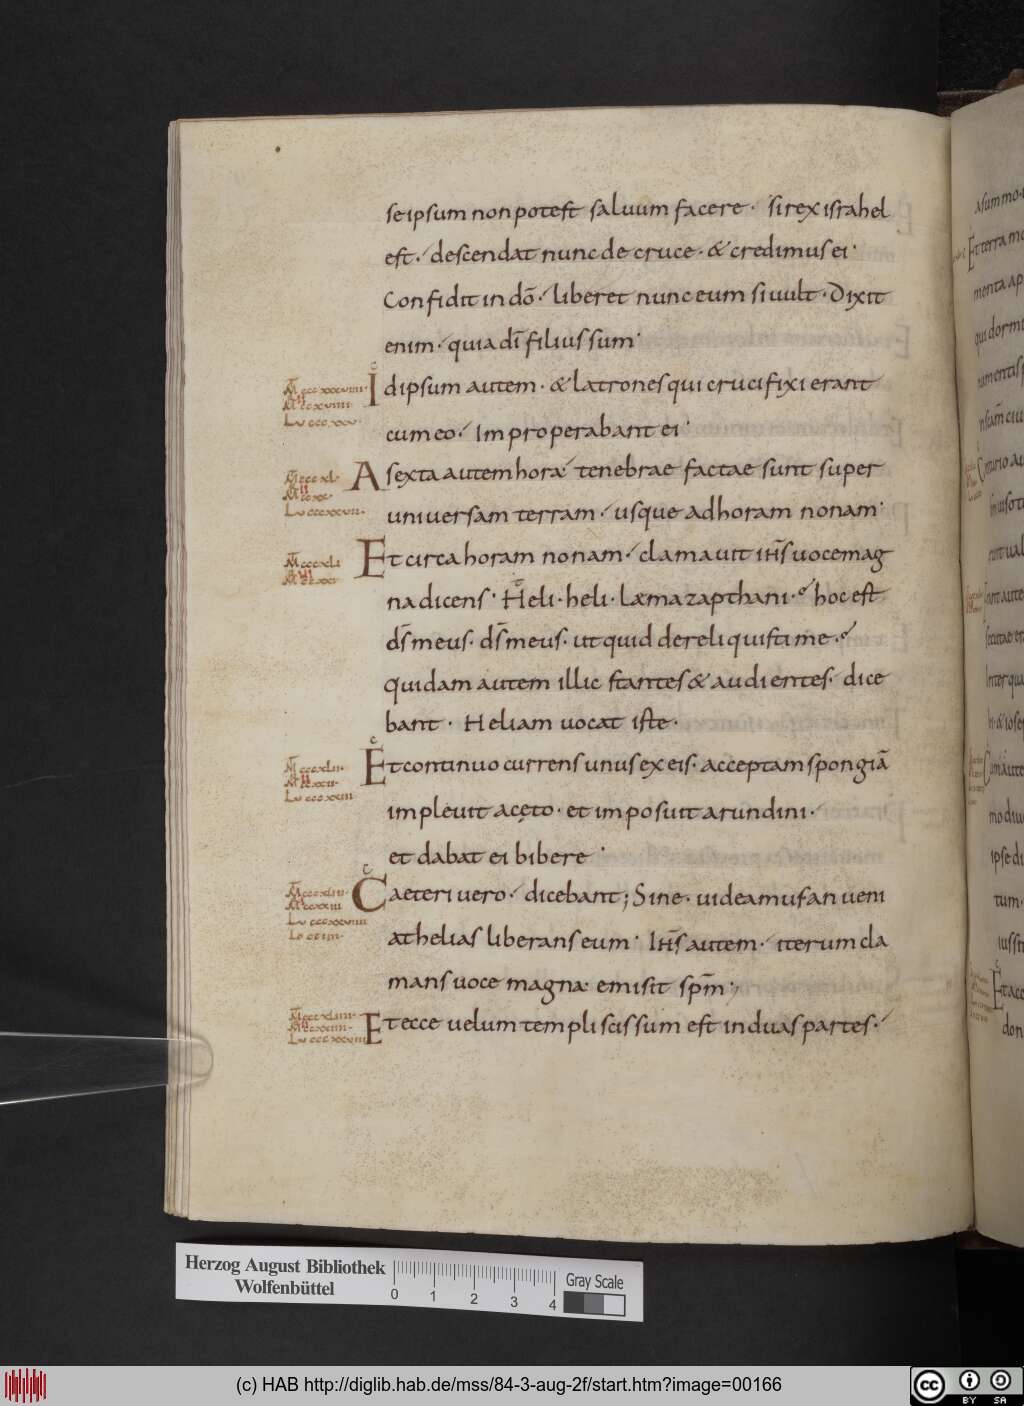 seipsum non potest saluum facere · si rex israhel
est · descendat nunc de cruce · & credimus ei ·
Confidit in dō · liberet nunc eum si uult · Dixit
enim · quia dī filius sum ·
Idipsum autem · & latrones qui crucifixi erant
cum eo · Improperabant ei ·
A sexta autem hora tenebrae factae sunt super
uniuersam terram · usque ad horam nonam ·
Et circa horam nonam · clamauit ihs̄ uoce mag
na dicens · Heli · heli · laema zapthani · hoc est
ds̄ meus · ds̄ meus · ut quid dereliquisti me ·
quidam autem illic stantes & audientes · dice
bant · Heliam uocat iste ·
Et continuo currens unus ex eis · acceptam spongiā
impleuit acęto · et imposuit arundini ·
et dabat ei bibere ·
Caeteri uero · dicebant ; Sine · uideamus an ueni
at helias liberans eum · Ihs̄ autem · iterum cla
mans uoce magna emisit spm̄ ·
Et ecce uelum templi scissum est in duas partes ·
Herzog August Bibliothek
Wolfenbüttel
0 1 2 3 4
Gray Scale
(c) HAB http://diglib.hab.de/mss/84-3-aug-2f/start.htm?image=00166
cc BY SA